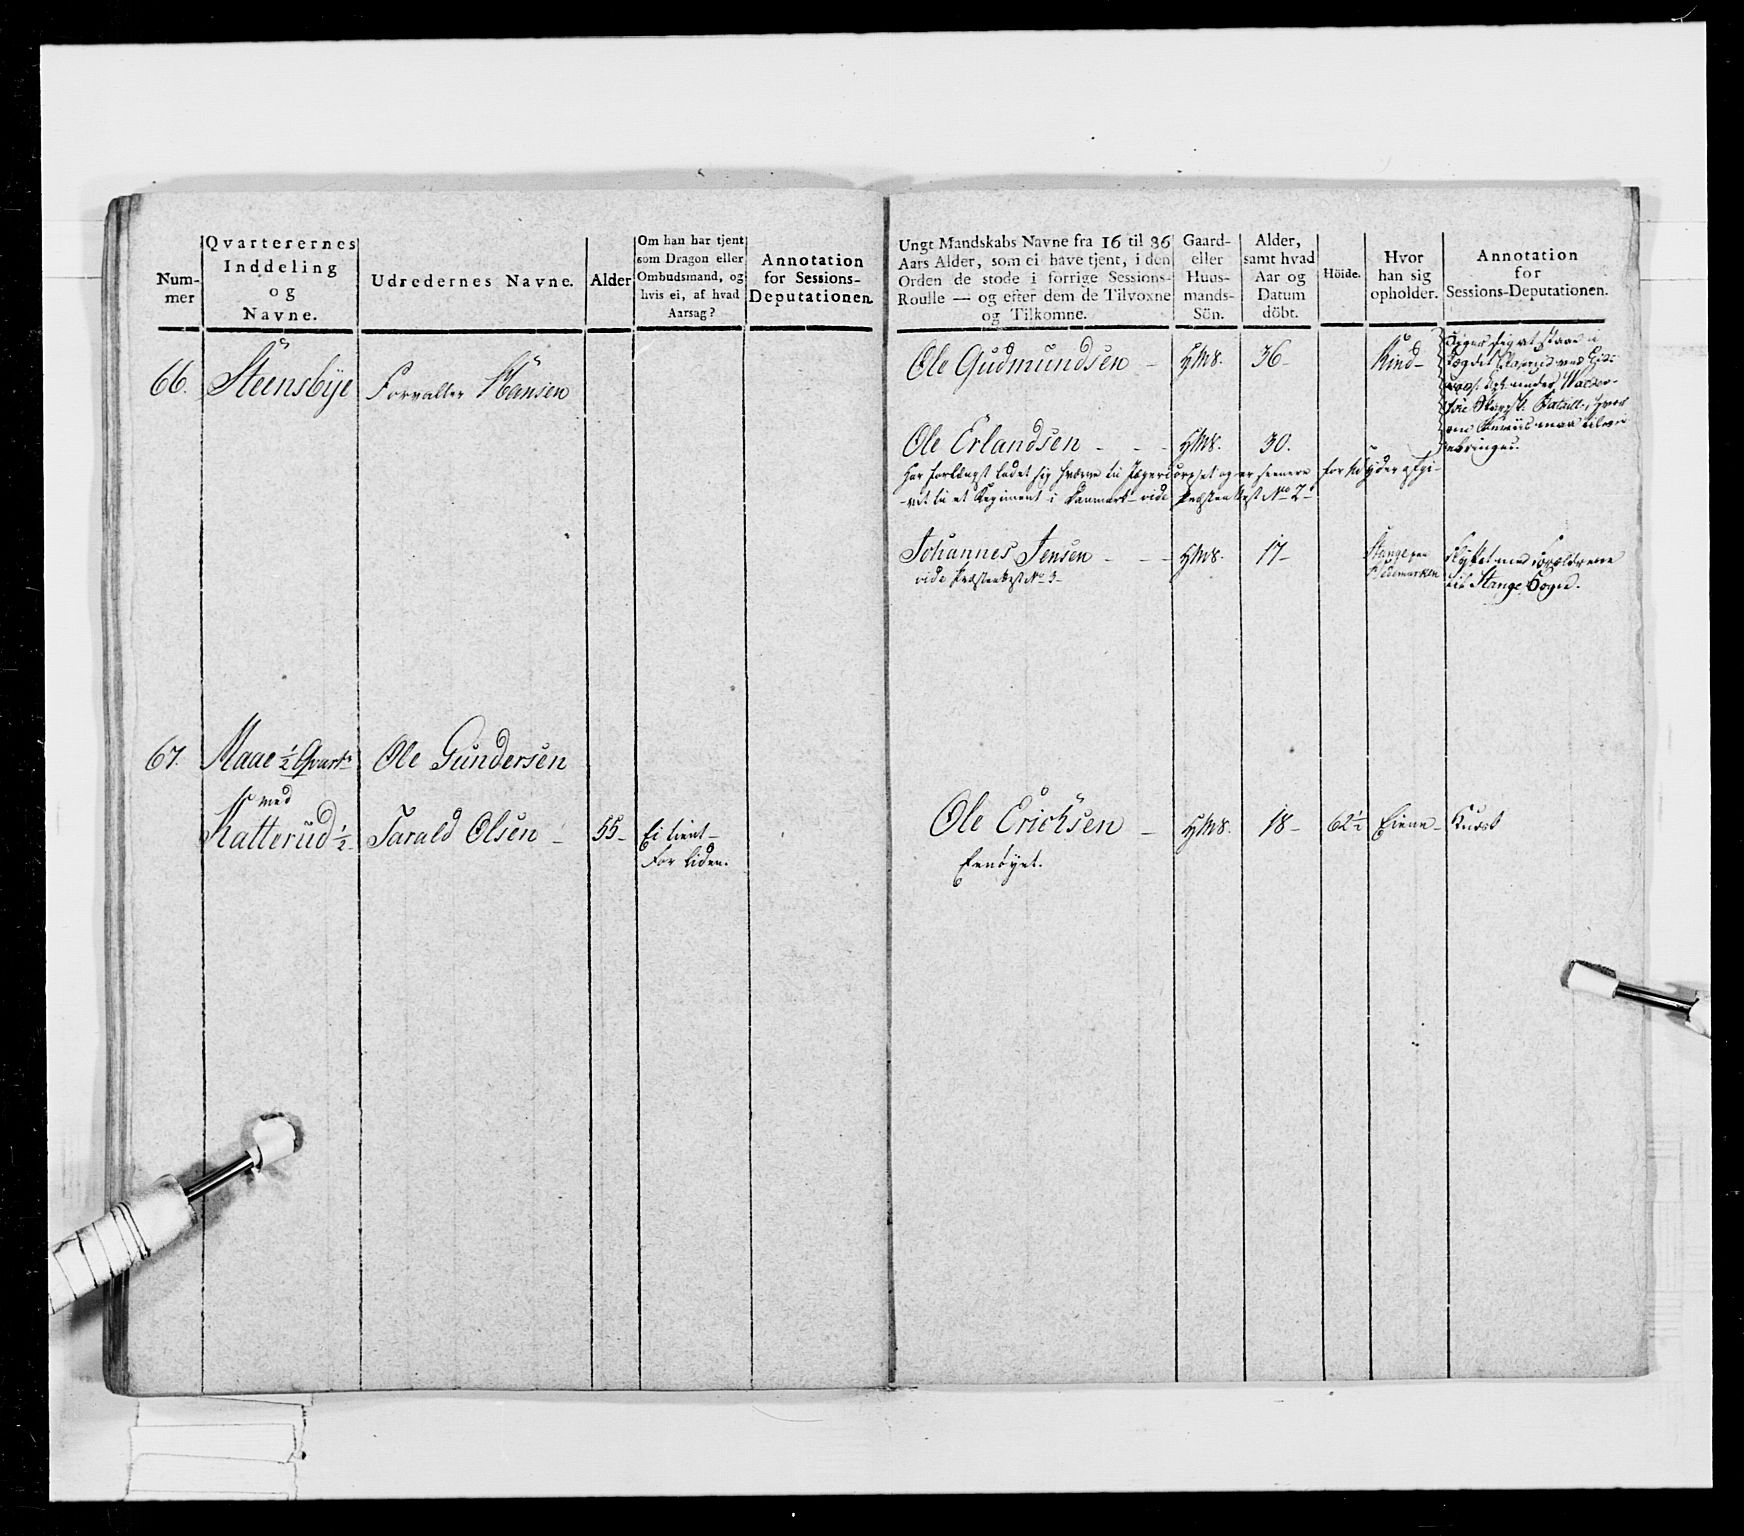 Num-
mer
Qvarterernes
Inddeling
og
Navne.
Udredernes Navne.
Alder
Om han har tjent
som Dragon eller
Ombudsmand, og
hvis ei, af hvad
Aarsag?
Annotation
for Sessions-
Deputationen.
66.
Steensbye
Forvalter Hansen
67.
Maae ½ Qvart.
med
Katterud ½
Ole Gundersen
Tarald Olsen
55-
Ei tient-
for liden.
Ungt Mandskabs Navne fra 16 til 36
Aars Alder, som ei have tjent, i den
Orden de stode i forrige Sessions-
Roulle — og efter dem de Tilvoxne
og Tilkomne.
Gaard-
eller
Huus-
mands-
Sön.
Alder,
samt hvad
Aar og
Datum
döbt.
Höide.
Hvor
han sig
opholder.
Annotation
for
Sessions-Deputationen.
Ole Gudmundsen - HMS. 36-
Siger sig at staae i
Ole Erlandsen - - HMS. 30.
har forlængst ladet sig hverve til Jægercorpset og er senere
-vet til et Regiment i Danmark - vide Præsteattest No 2-
Johannes Jensen - - - HMS. 17-
vide Præsteattest No 3-
Stange paa
Hedemarken
flyttet med Forældrene
til Stange Sogn.
Ole Erichsen - HMS. 18- 62½
Eenøyet.